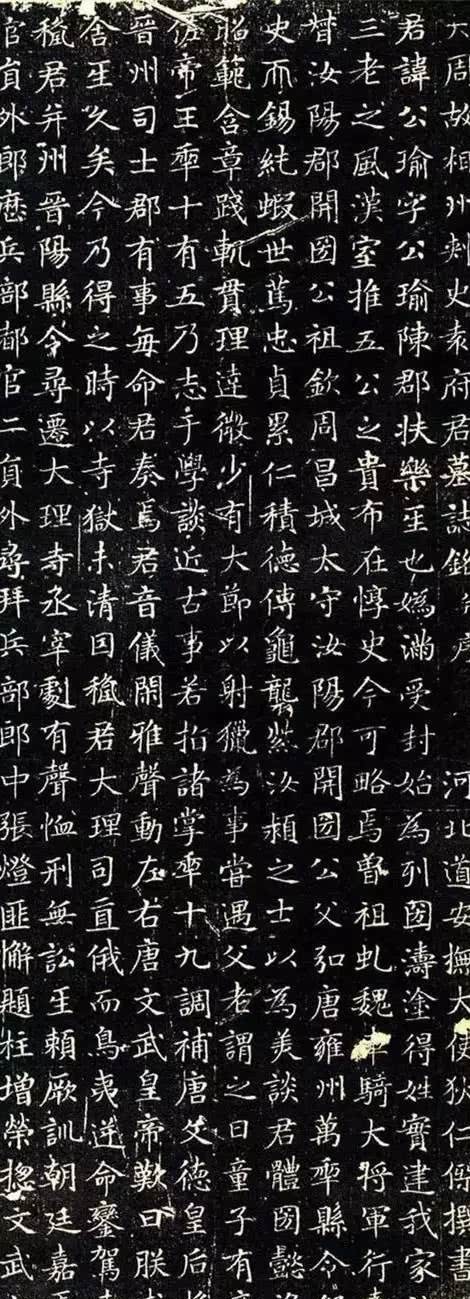 大周故相州刾史袁府君墓誌銘 河北道安撫大使狄仁傑撰書
君諱公瑜字公瑜陳郡扶樂𤯔也媯滿受封始為列圀濤塗得姓實建我家
三老之風漢室推五公之貴布在惇史今可略焉曾祖虬魏車騎大將軍行
督汝陽郡開圀公祖欽周昌城太守汝陽郡開圀公父弘唐雍州萬𠡦縣令
史而錫純蝦世篤忠貞累仁積德傳龜襲紫汝潁之士以為美談君體圀懿
昭範含章踐軌貫理達微少有大節以射獵為事嘗遇父老謂之曰童子有
佐帝王𠡦十有五乃志于學談近古事若指諸掌𠡦十九調補唐文德皇后
晉州司士郡有事每命君奏焉君音儀閑雅聲動左右唐文武皇帝歎曰朕
舍𤯔久矣今乃得之時以寺獄未清因𥠢君大理司直俄而島夷逆命鑾駕
𥠢君并州晉陽縣令尋遷大理寺丞宰劇有聲恤刑無訟𤯔賴厥訓朝廷嘉
官員外郎歷兵部都官二員外尋拜兵部郎中張燈匪懈題柱增榮揔文武